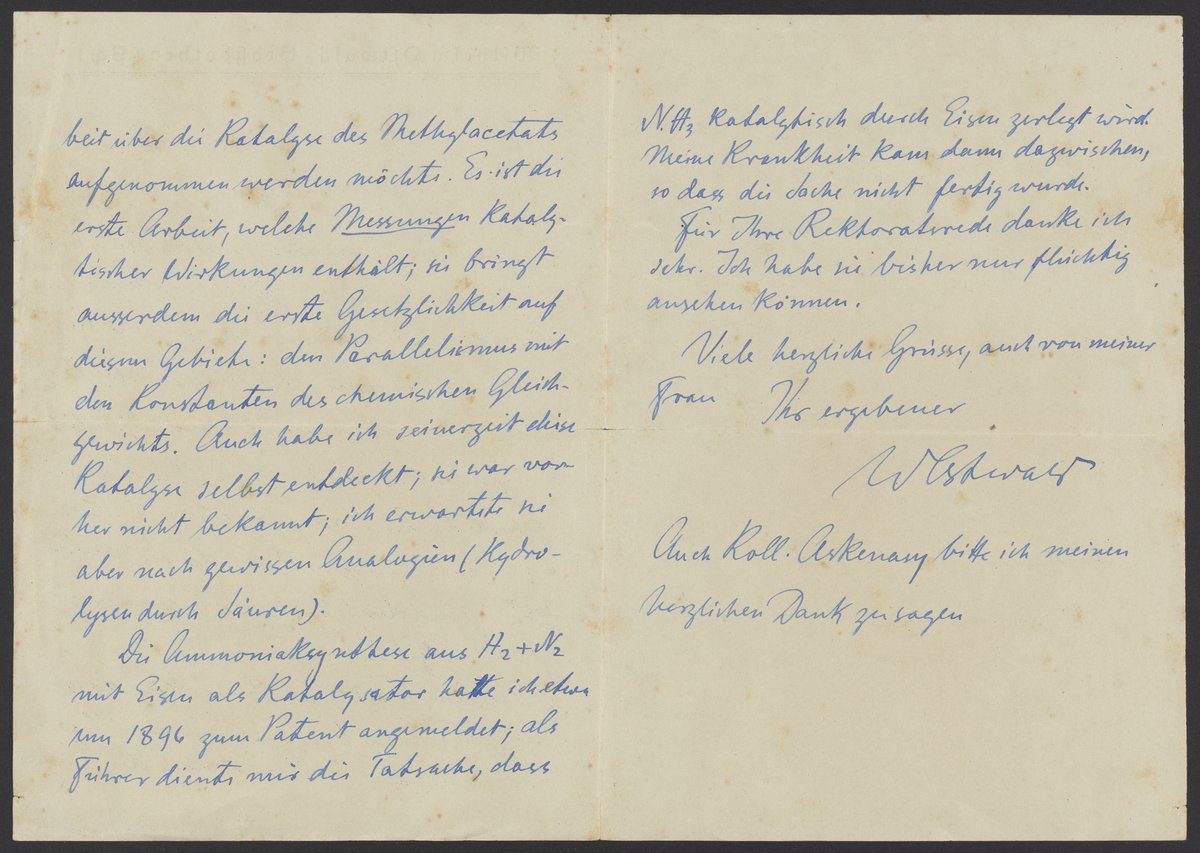 beit über die Katalyse des Methylacetats
aufgenommen werden möchte. Es ist die
erste Arbeit, welche Messungen kataly-
tischer Wirkungen enthält; sie bringt
ausserdem die erste Gesetzlichkeit auf
diesem Gebiete: den Parallelismus mit
den Konstanten des chemischen Gleich-
gewichts. Auch habe ich seinerzeit diese
Katalyse selbst entdeckt; sie war vor-
her nicht bekannt; ich erwartete sie
aber nach gewissen Analogien (Hydro-
lysen durch Säuren).
Die Ammoniaksynthese aus H2+N2
mit Eisen als Katalysator hatte ich etwa
um 1896 zum Patent angemeldet; als
Führer diente mir die Tatsache, dass
NH3 katalytisch durch Eisen zerlegt wird.
Meine Krankheit kam dann dazwischen,
so dass die Sache nicht fertig wurde.
Für Ihre Rektoratsrede danke ich
sehr. Ich habe sie bisher nur flüchtig
ansehen können.
Viele herzliche Grüsse, auch von meiner
Frau Ihr ergebener
WOstwald
Auch Koll. Askenasy bitte ich meinen
herzlichen Dank zu sagen